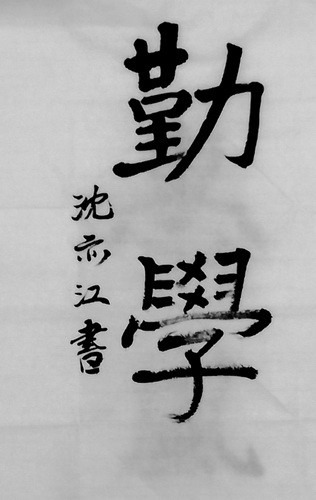 勤學
沈亦江書